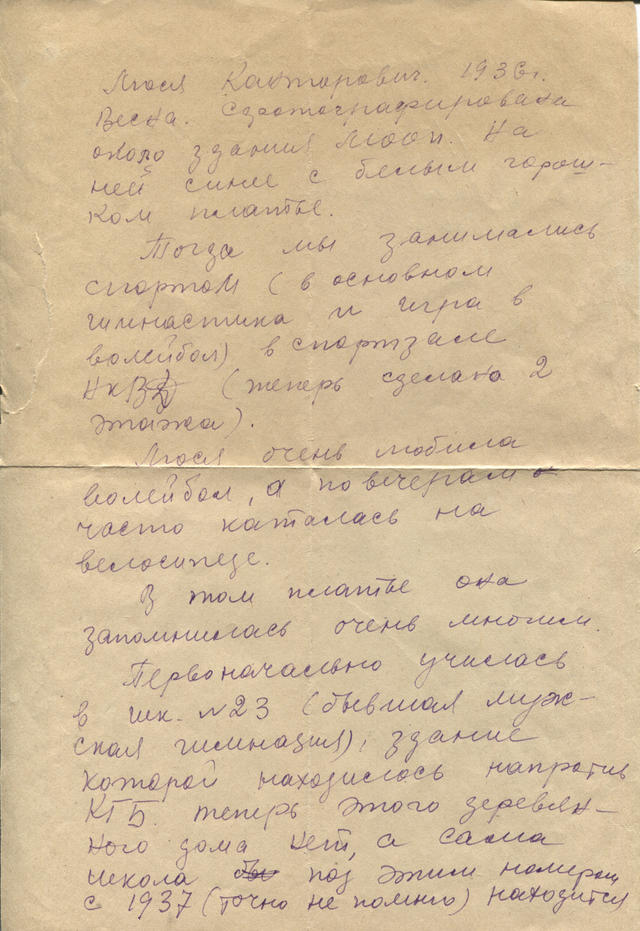 Люся Канторович. 1936г.
Весна. Сфотографирована
около здания МООП. На
ней синее с белым горош-
ком платье.
Тогда мы занимались
спортом (в основном
гимнастика и игра в
волейбол) в спортзале
НКВД (теперь сделано 2
этажа).
Люся очень любила
волейбол, а по вечерам
часто каталась на
велосипеде.
В том платье она
запомнилась очень многим.
Первоначально училась
в шк. №23 (бывшая муж-
ская гимназия), здание
которой находилось напротив
КГБ. теперь этого деревян-
ного дома нет, а сама
школа под этим номером
с 1937 (точно не помню) находится